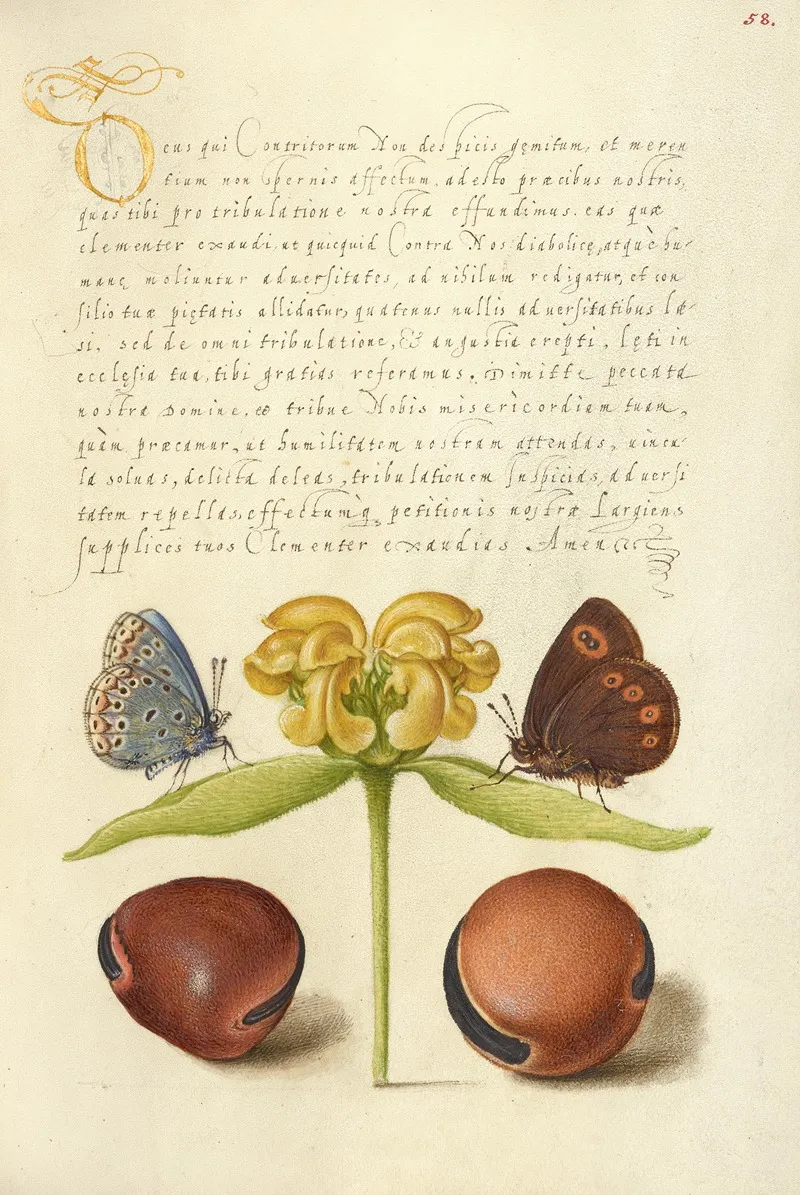 58.
Deus qui Contritorum Non despicis gęmitum, et meren
tium non spernis affectum, adesto præcibus nostris,
quas tibi pro tribulatione nostra effundimus. eas quæ
clementer exaudi, ut quicquid Contra Nos diabolicę, atquè hu-
manę moliuntur aduersitates, ad nihilum redigatur, et con
silio tuæ piętatis allidatur, quatenus nullis aduersitatibus læ-
si, sed de omni tribulatione, & angustia erepti, lęti in
ecclesia tua, tibi gratias referamus. Dimitte peccata
nostra Domine, et tribue Nobis misericordiam tuam,
quàm præcamur, ut humilitatem nostram attendas, uincu-
la soluas, delicta deleas, tribulationem Inspicias, aduersi
tatem repellas, effectumq, petitionis nostræ Largiens
supplices tuos Clementer exaudias Amen